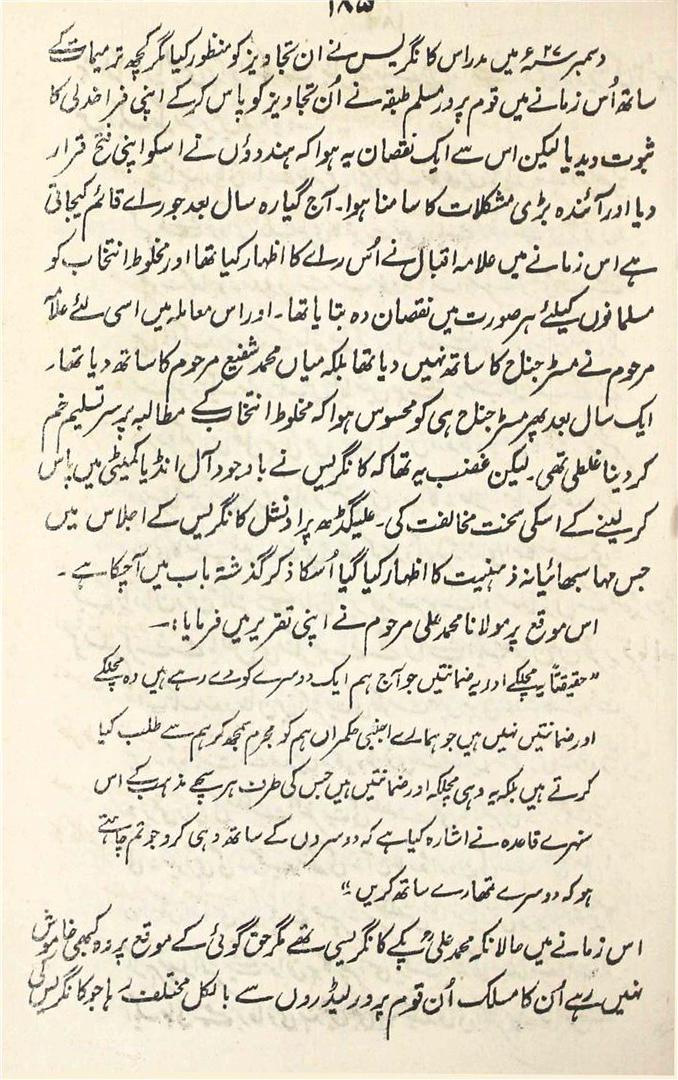 ۱۸۵
دسمبر ۲۷ء میں مدراس کانگریس نے ان تجاویز کو منظور کیا مگر کچھ ترمیمات کے
ساتھ اُس زمانے میں قوم پرور مسلم طبقہ نے اُن تجاویز کو پاس کر کے اپنی فراخدلی کا
ثبوت دیدیا لیکن اس سے ایک نقصان یہ ہوا کہ ہندوؤں نے اسکو اپنی فتح قرار
دیا اور آئندہ بڑی مشکلات کا سامنا ہوا۔ آج گیارہ سال بعد جو راے قائم کیجاتی
ہے اس زمانے میں علامہ اقبال نے اُس راے کا اظہار کیا تھا اور مخلوط انتخاب کو
مسلمانوں کیلئے ہر صورت میں نقصان دہ بتایا تھا۔ اور اس معاملہ میں اسی لئے علامہ
مرحوم نے مسٹر جناح کا ساتھ نہیں دیا تھا بلکہ میاں محمد شفیع مرحوم کا ساتھ دیا تھا۔
ایک سال بعد پھر مسٹر جناح ہی کو محسوس ہوا کہ مخلوط انتخاب کے مطالبہ پر سر تسلیم خم
کر دینا غلطی تھی۔ لیکن غضب یہ تھا کہ کانگریس نے باوجود آل انڈیا کمیٹی میں پاس
کر لینے کے اسکی سخت مخالفت کی۔ علیگڈھ پراونشل کانگریس کے اجلاس میں
جس مہا سبھائیانہ ذہنیت کا اظہار کیا گیا اُسکا ذکر گذشتہ باب میں آچکا ہے۔
اس موقع پر مولانا محمد علی مرحوم نے اپنی تقریر میں فرمایا:۔
"حقیقتاً یہ مچلکے اور یہ ضمانتیں جو آج ہم ایک دوسرے کو دے رہے ہیں وہ مچلکے
اور ضمانتیں نہیں ہیں جو ہمارے اجنبی حکمراں ہم کو مجرم سمجھ کر ہم سے طلب کیا
کرتے ہیں بلکہ یہ وہی مچلکہ اور ضمانتیں ہیں جس کی طرف ہر سچے مذہب کے اس
سنہرے قاعدہ نے اشارہ کیا ہے کہ دوسروں کے ساتھ وہی کرو جو تم چاہتے
ہو کہ دوسرے تمھارے ساتھ کریں۔"
اس زمانے میں حالانکہ محمد علیؒ پکے کانگریسی تھے مگر حق گوئی کے موقع پر وہ کبھی خاموش
نہیں رہے اُن کا مسلک اُن قوم پرور لیڈروں سے بالکل مختلف رہا جو کانگریس کی